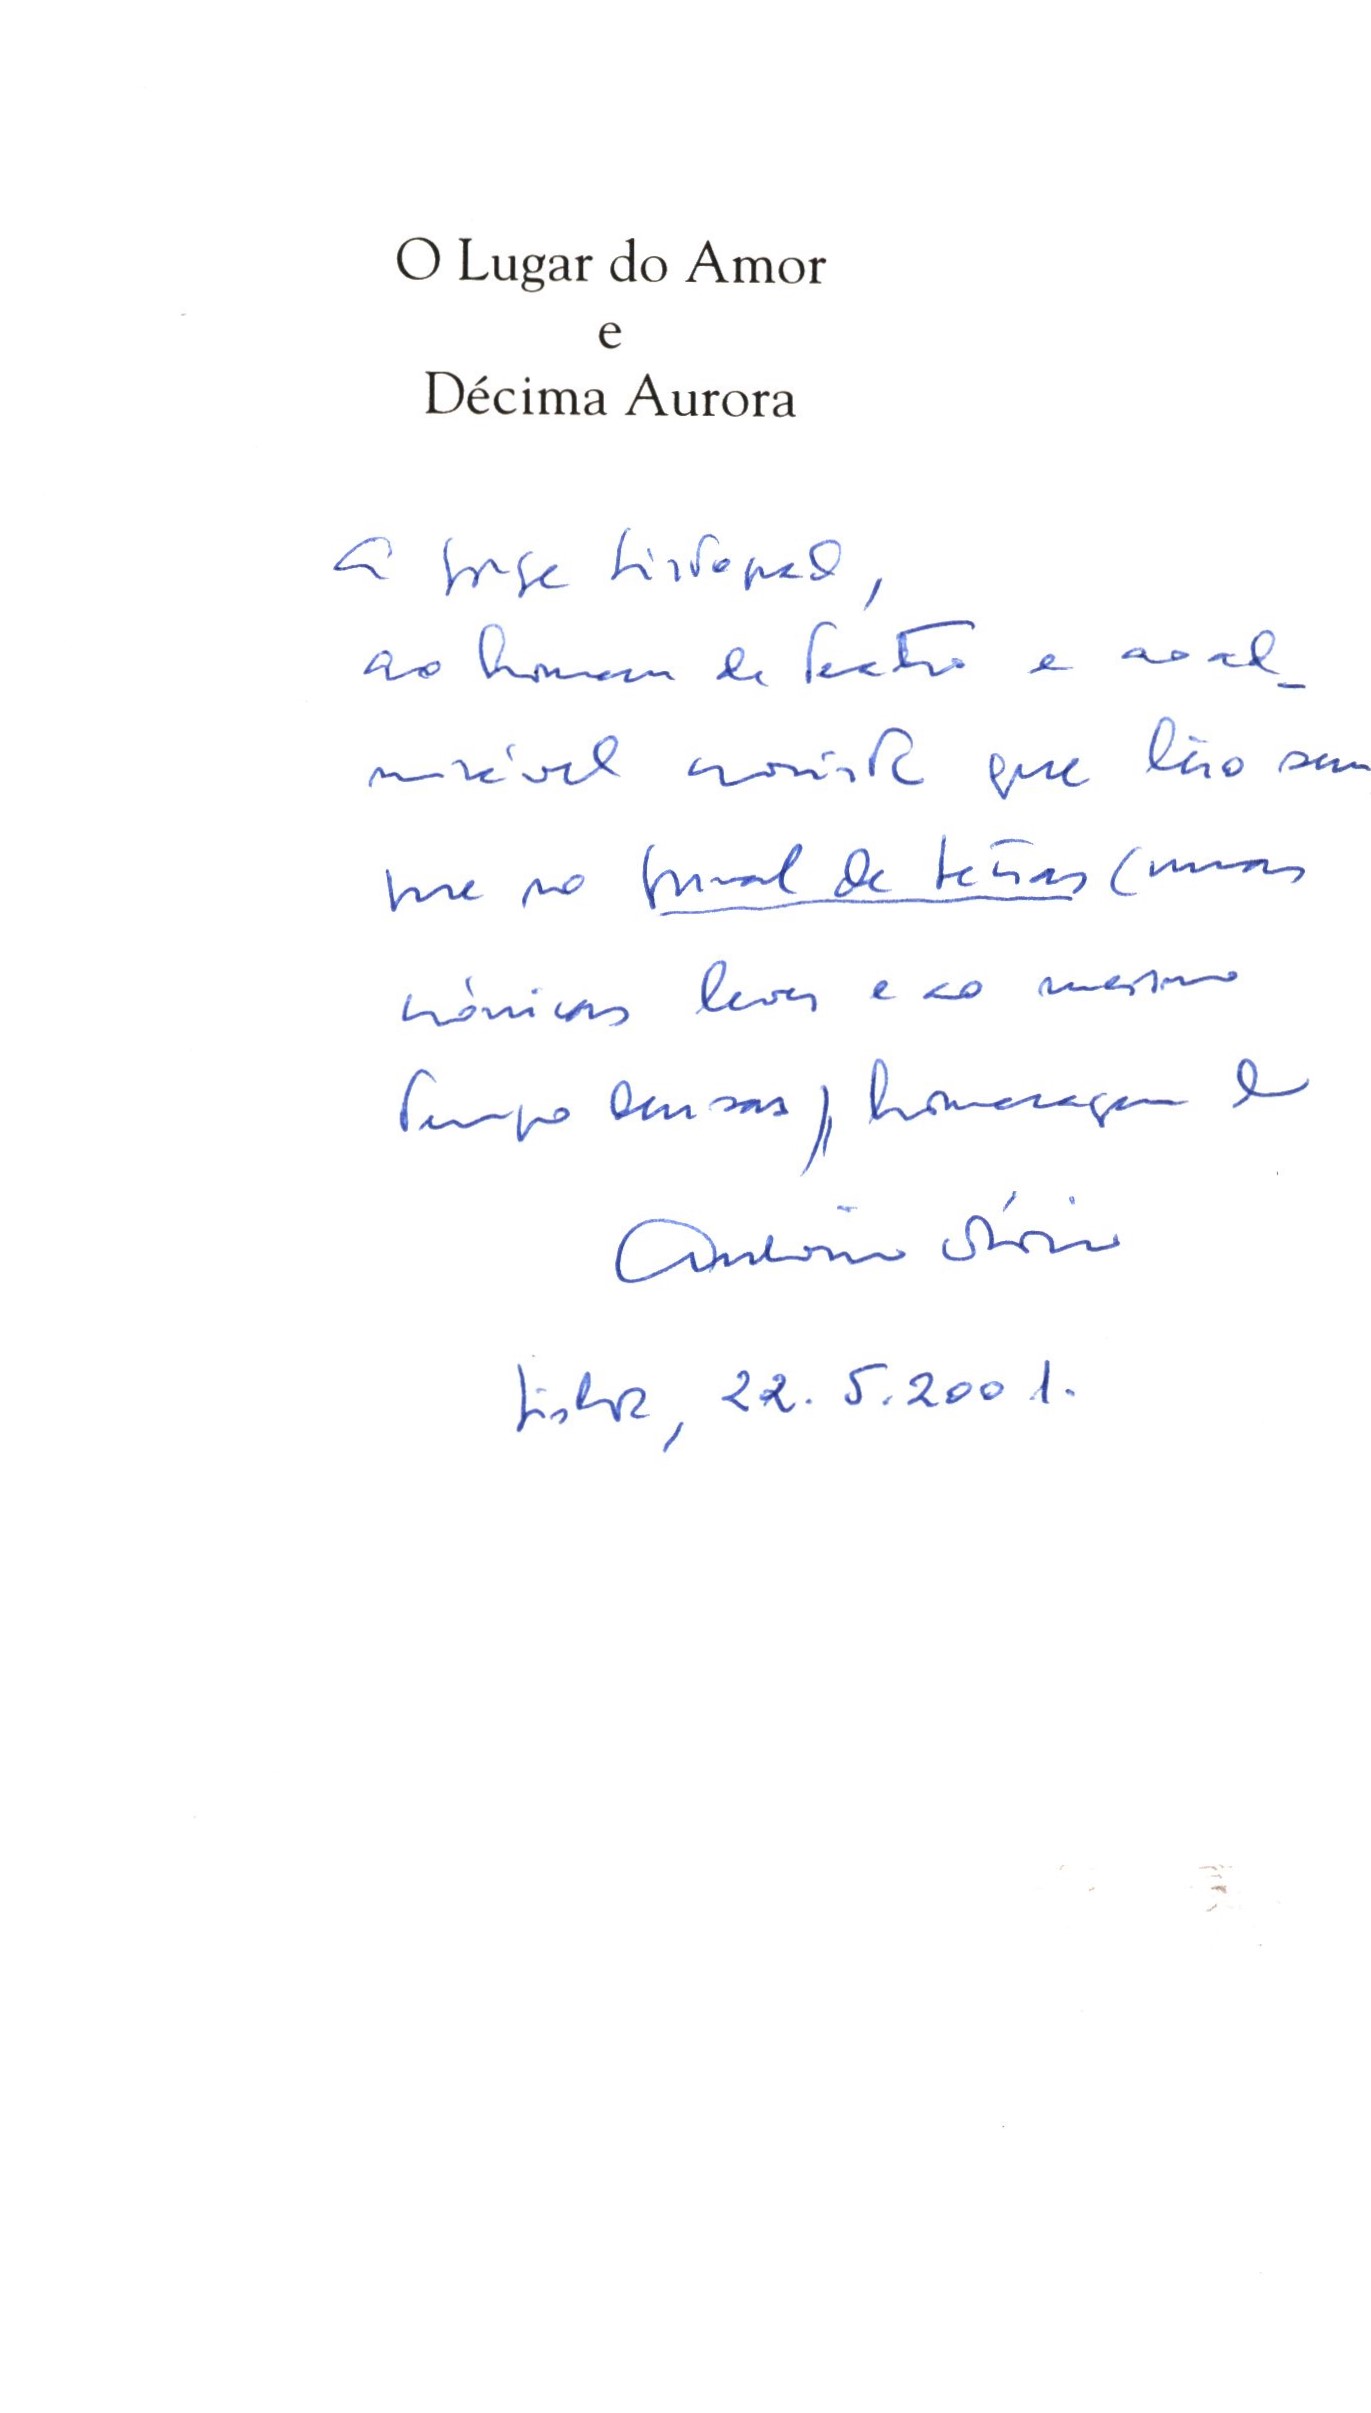 O Lugar do Amor
e
Décima Aurora
A Jorge Listopad,
ao homem de teatro e ao ad-
mirável cronista que leio sem
pre no Jornal de Letras (umas
crónicas leves e ao mesmo
tempo densas), homenagem de
António Osório
Lisboa, 22.5.2001.